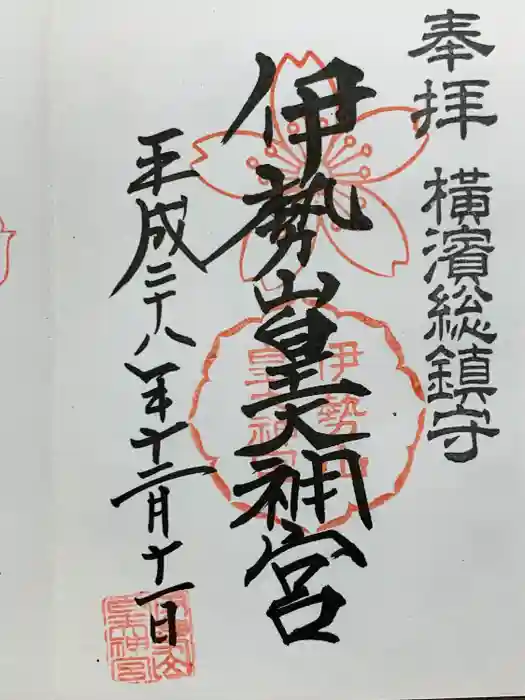 奉拝 横濱総鎮守
伊勢山皇大神宮
平成二十八年十二月十一日
伊勢山
皇大神宮